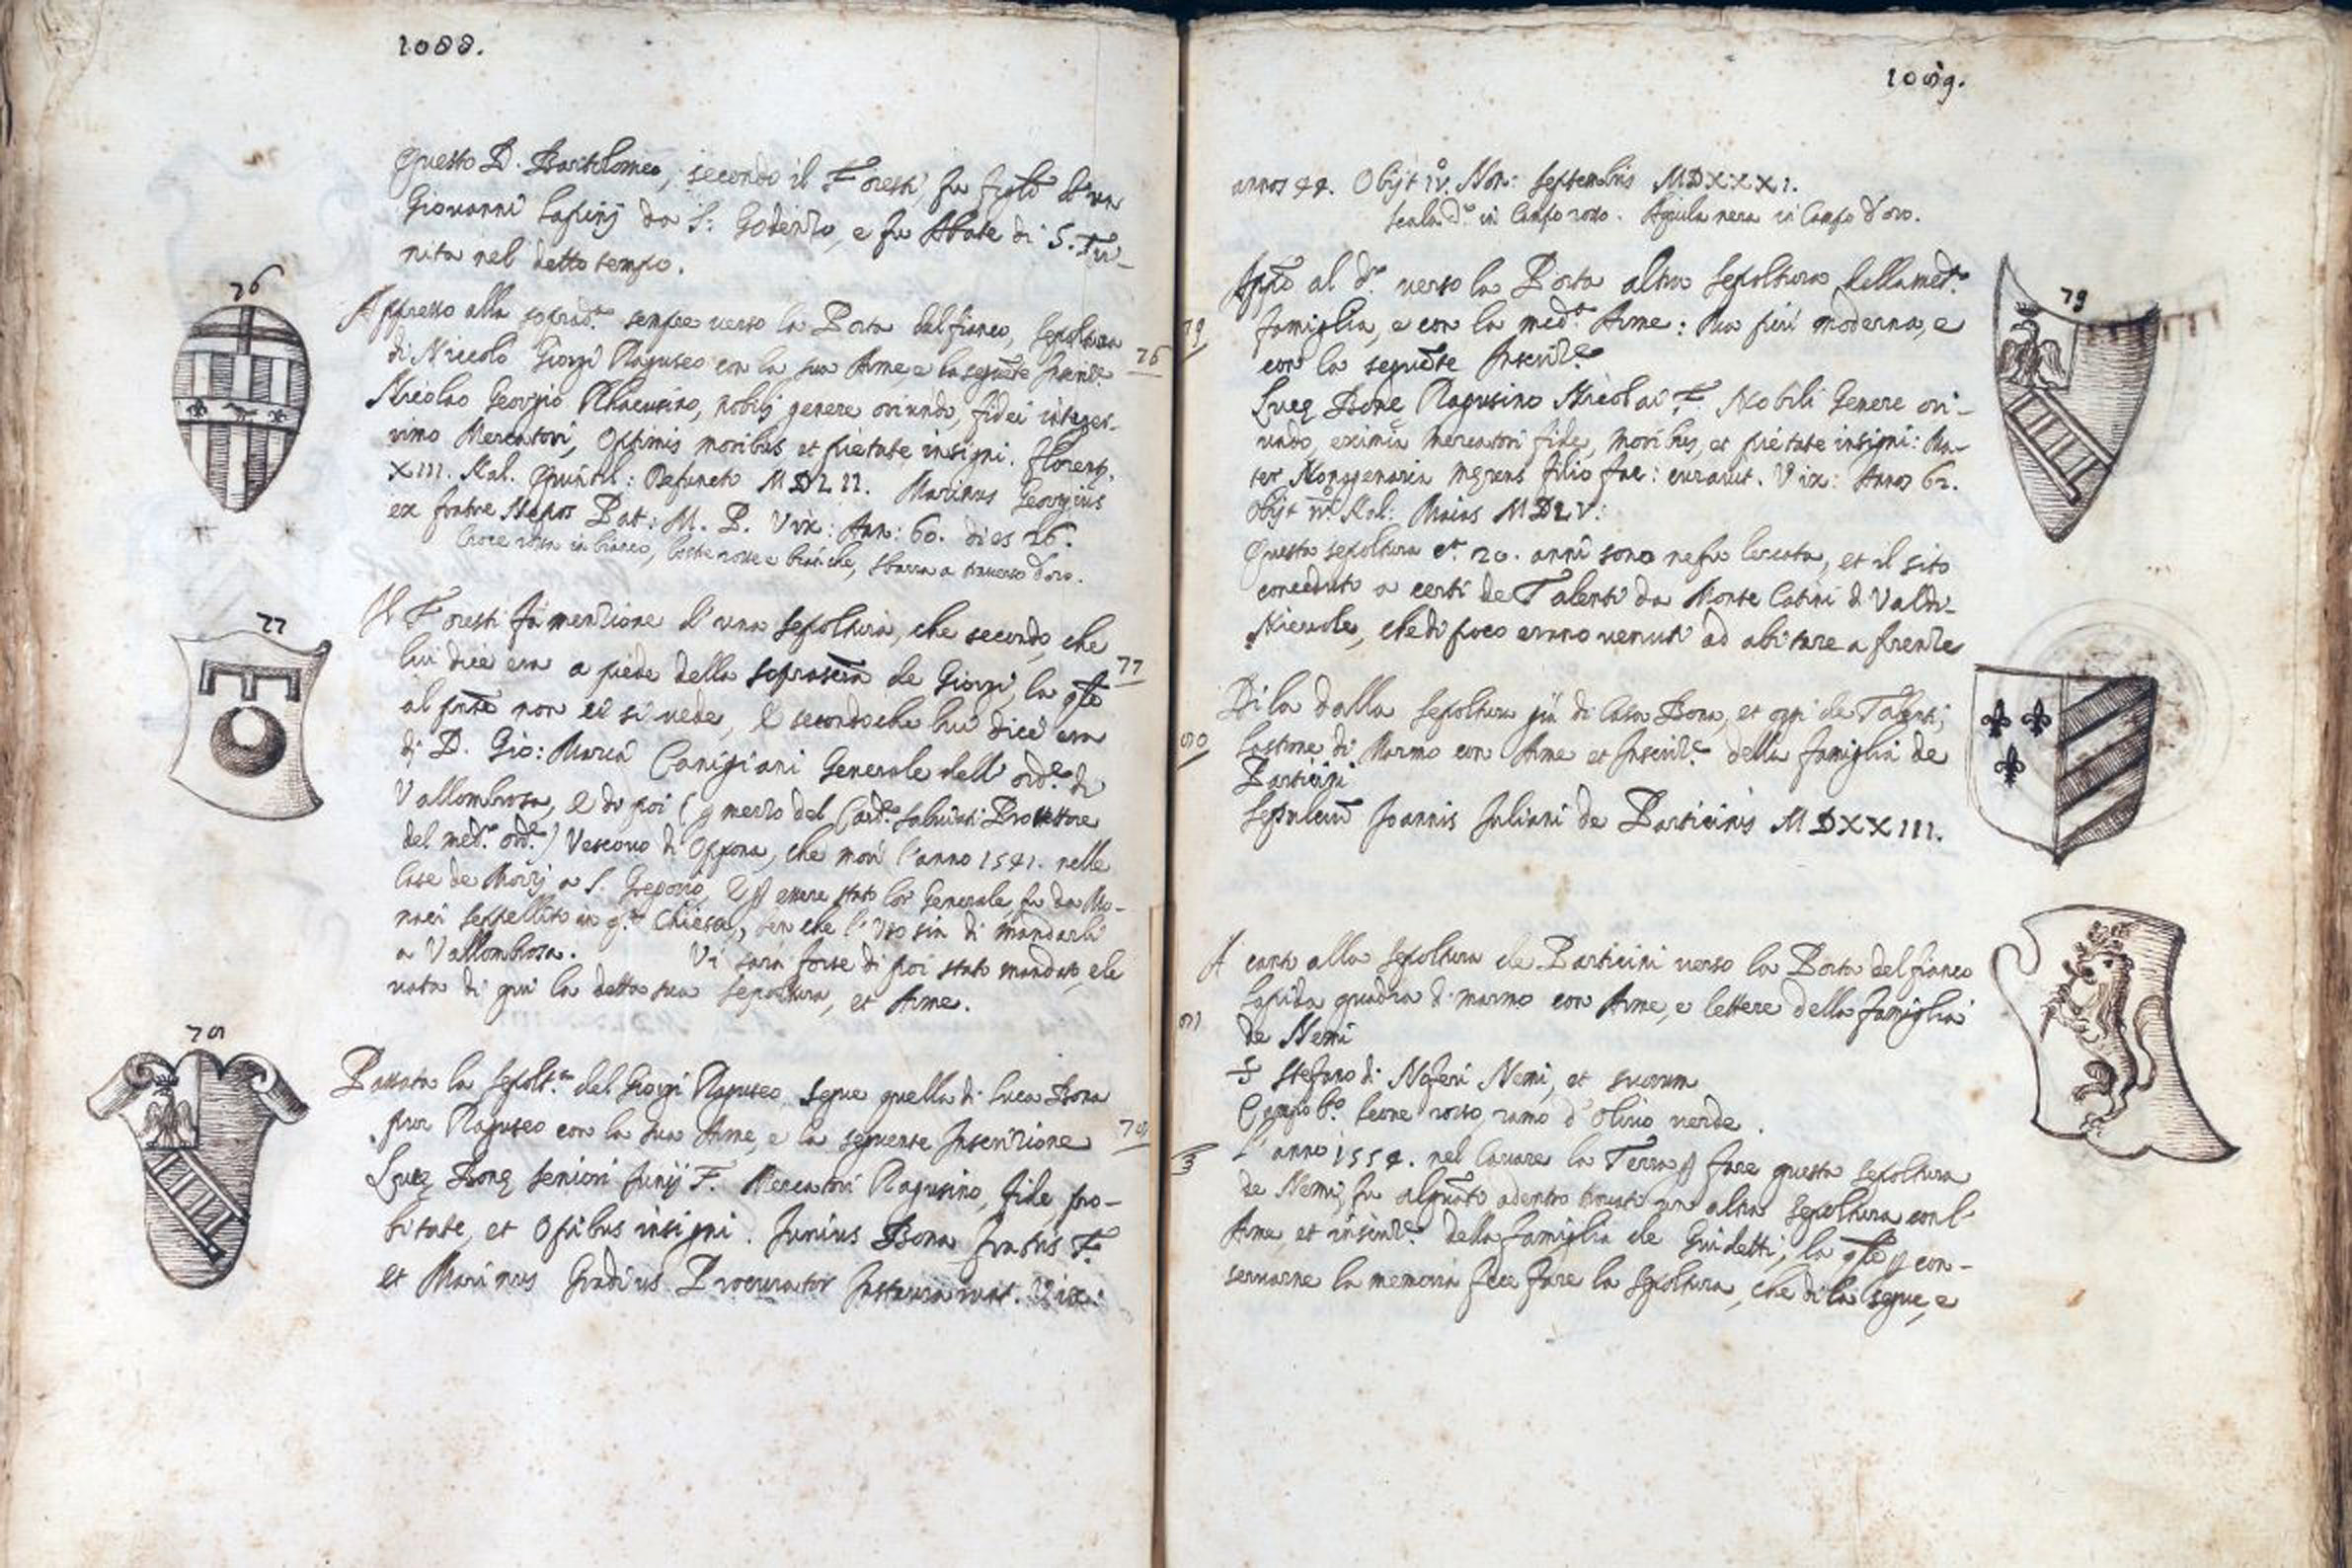 1088.
Questo D. Bartolomeo, secondo il Foresti, fu figlo d'un
Giovanni Lapinj da S. Godenzo, e fu Abate di S. Tri-
nita nel detto tempo.
76
Appresso alla soprad.ta sempre verso la Porta del fianco, Sepoltura
di Niccolò Giorgi Raguseo con la sua Arme e la seguēte Inscriz.e
76
Nicolao Georgio Rhacusino, nobilj genere oriundo, fidei integer-
rimo Mercatori, Optimis moribus et pietate insigni. Florent.
XIII. Kal. Quintil: Defuncto MDLII. Marinus Georgius
ex fratre Nepos Pat: M. P. Vix: Ann: 60. dies 26.
Croce rossa in bianco, Coste rosse e bianche, sbarra a traverso d'oro.
77
Il Foresti fa menzione d'una sepoltura, che secondo, che
lui dice era a piede della soprascr̄a de Giorgi, la qle
77
al pn̄te non ci si vede, e secondo che lui dice era
di D. Gio: Maria Canigiani Generale dell' ord.e di
Vallombrosa, e di poi (p mezzo del Card.e Salviati Protettore
del med.o ord.e) Vescovo di Ippona, che morì l'anno 1541. nelle
Case de Mozzj a S. Gregorio, e p essere stato lor Generale, fu da Mo-
naci seppellito in q.ta Chiesa, ben che l'uso sia di mandarli
a Vallombrosa. Vi sarà forse di poi stato mandato, e le
vata di qui la detta sua sepoltura, et Arme.
78
Passata la sepolt.ra del Giorgi Raguseo, segue quella di Luca Bona
pur Raguseo con la sua Arme, e la seguente Inscrizione
78
Lucę Bonę seniori Junij F. Mercatori Ragusino, fide, pro-
bitate, et Opibus insigni. Junius Bona fratris F.
et Marinus Gradius Procurator Instauravit. Vix:
1089.
annos 44. Obijt iv. Non: Septembris MDXXXI.
Scala d.o in Campo rosso. Aquila nera in Campo d'oro.
Appō al d.o verso la Porta altra sepoltura della med.a
79
79
famiglia, e con la med.a Arme: Ma più moderna, e
con la seguēte Inscriz.e
Lucę Bonę Ragusino Nicolai F. Nobili Genere ori-
undo, eximia mercatori fide, moribus, et pietate insigni: Ma-
ter Nonagenaria męrens filio fac: curavit. Vix: Annos 62.
Obijt Kal: Maias MDLV.
Questa sepoltura 20. anni sono ne fu levata, et il sito
conceduto a certi de Talenti da Monte Catini di Valdi-
Nievole, che di poco erano venuti ad abitare a firenze
Di la dalla sepoltura già di Casa Bona, et oggi de Talenti,
80
Lastrone di Marmo con Arme et Inscriz.e della famiglia de
Particini
Sepulcrū Joannis Juliani de Particinis MDXXIII.
A canto alla sepoltura de Particini verso la Porta del fianco
Lapida quadra di marmo con Arme, e lettere della famiglia
81
de Nemi
S Stefano di Noferi Nemi, et suorum
Campo b.o leone rosso, ramo d'olivo verde.
l'anno 1554. nel Cavare la Terra p fare questa sepoltura
de Nemi, fu alquāto adentro trovato un altra sepoltura con l'
Arme, et inscriz.e della famiglia de Guidetti, la qle p con-
servarne la memoria fece fare la sepoltura, che di la segue, e